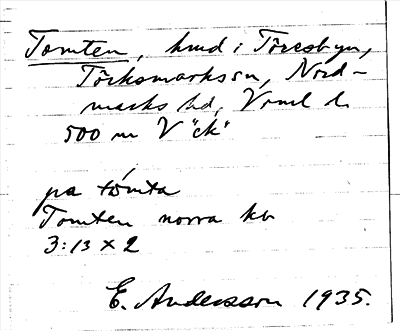 Tomten, hmd i Töresbyn,
Töcksmarks sn, Nord-
marks hd, Vrml l.
500 m V "ck"
pa tómta
Tomten norra kv
3:13 x 2
E. Andersson 1935.